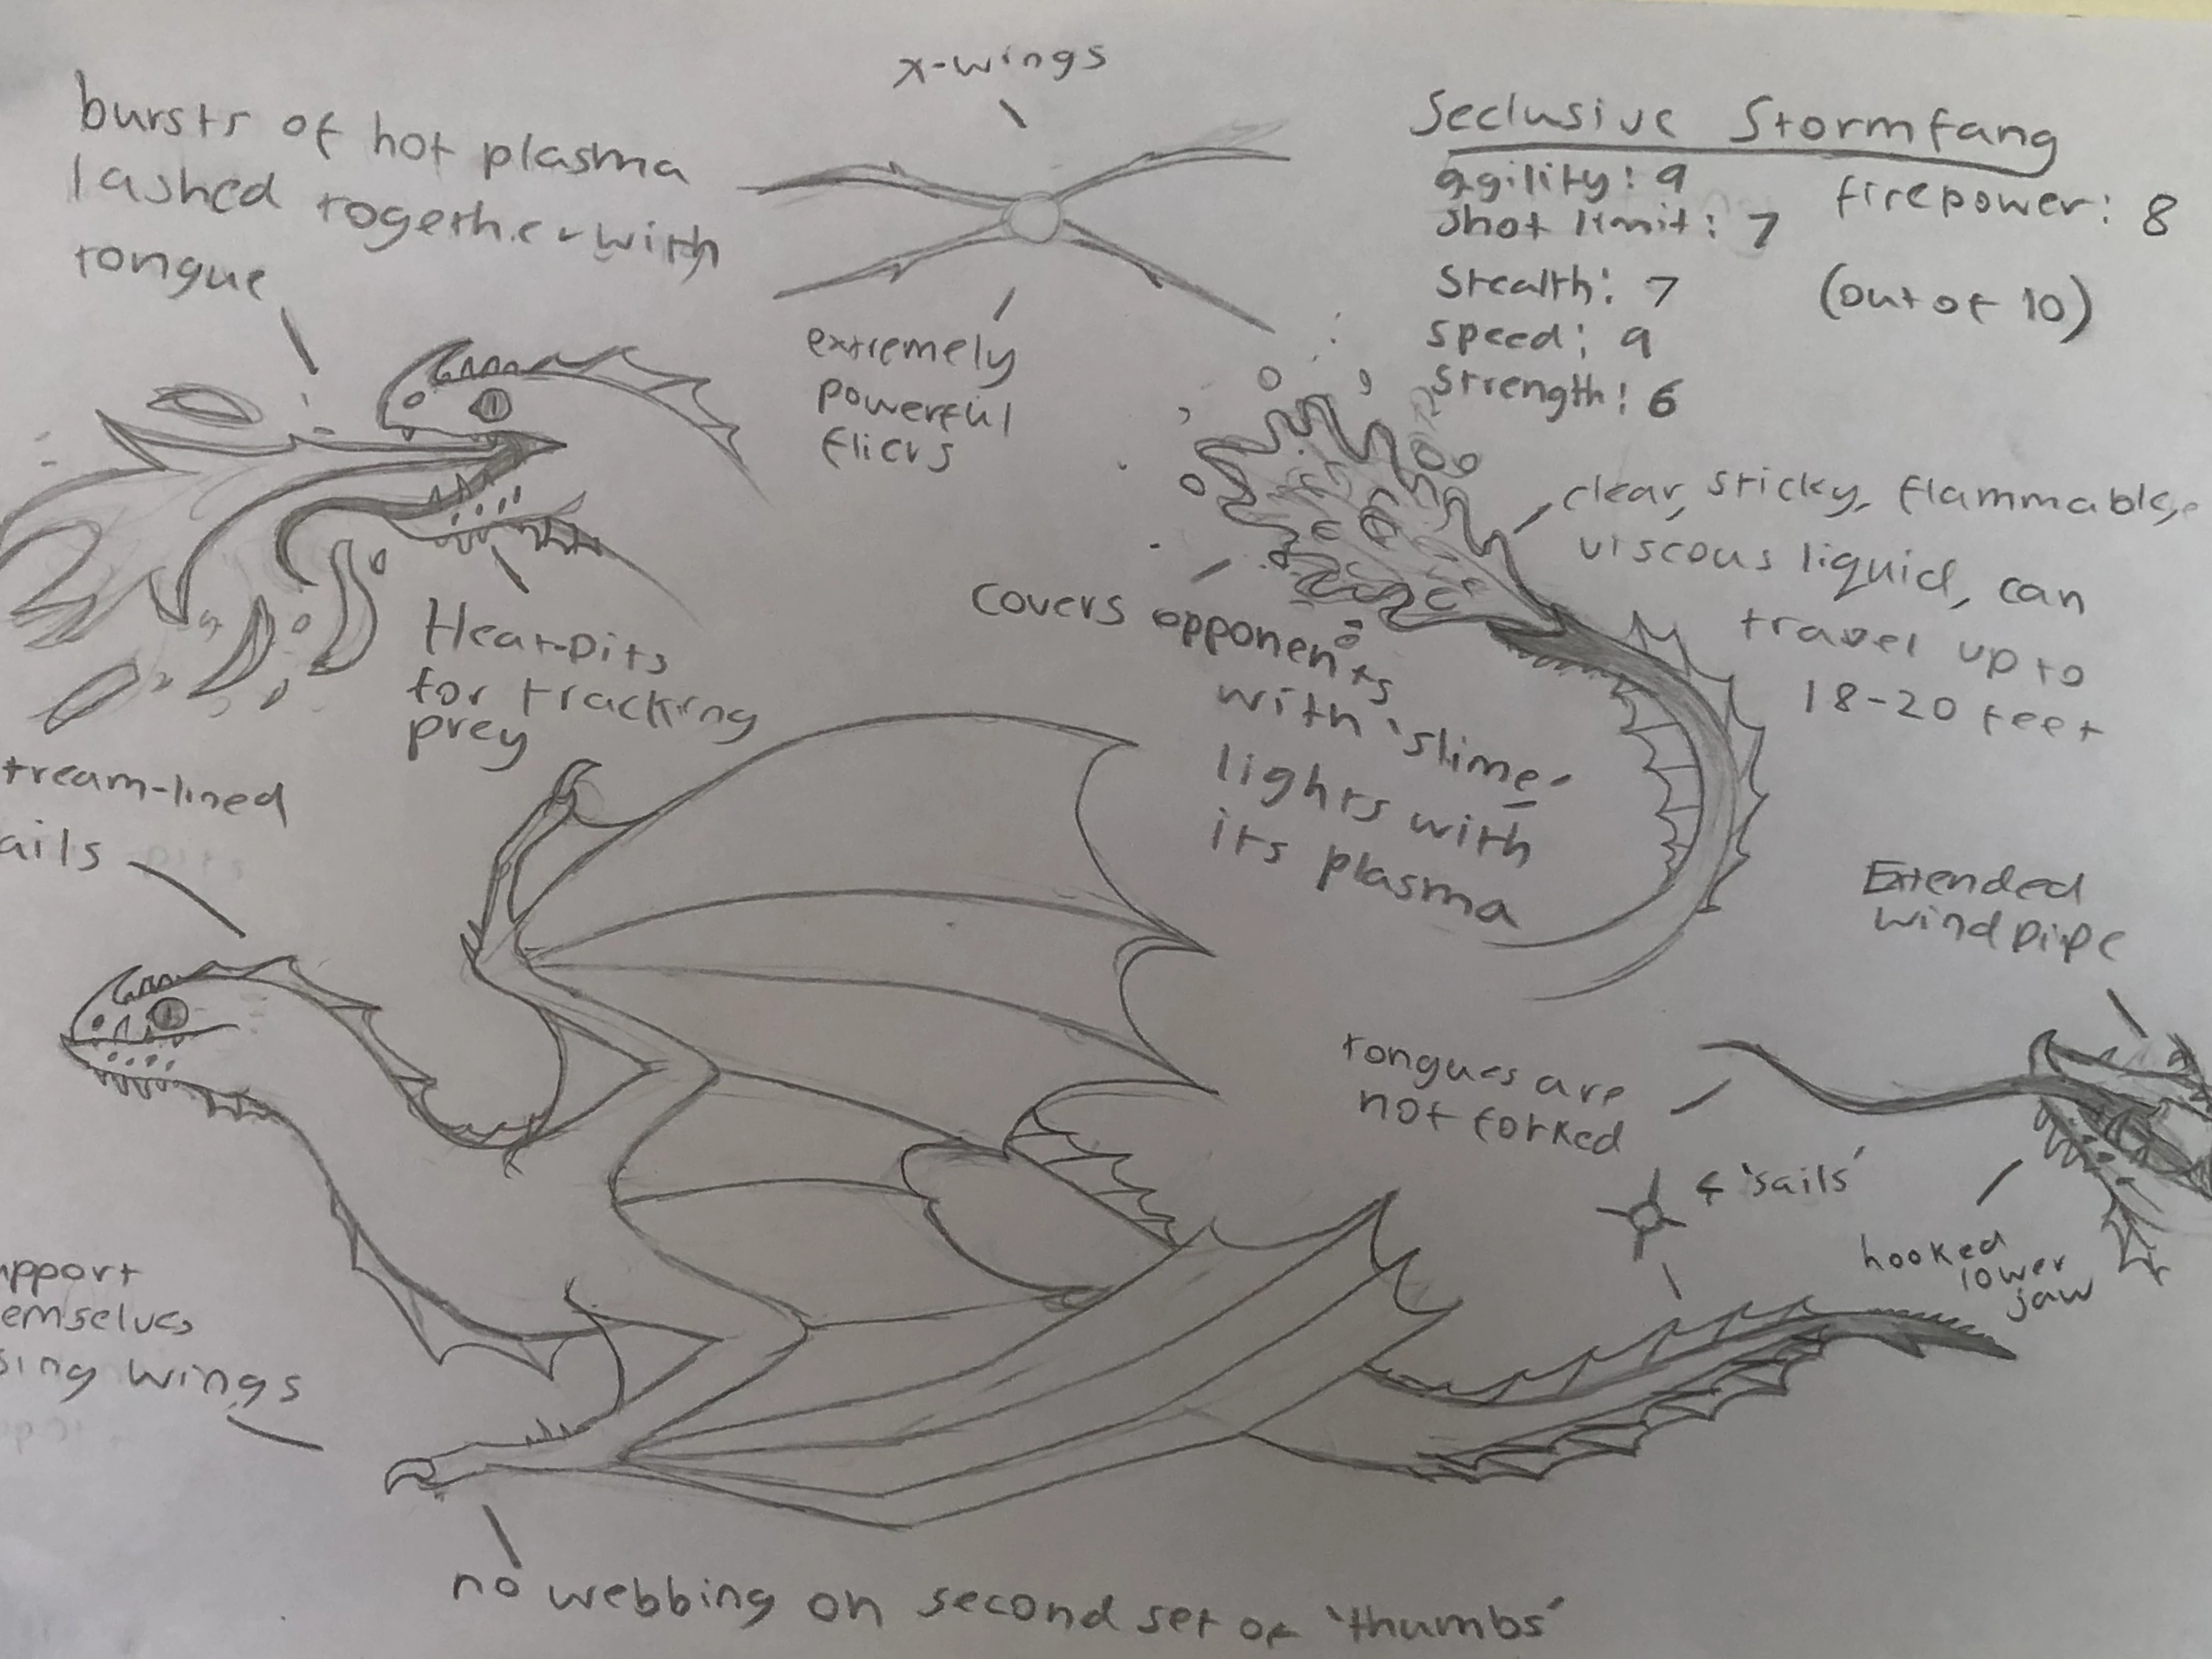 x-wings
bursts of hot plasma
lashed together with
tongue
extremely
powerful
flicks
Seclusive Stormfang
agility: 9
firepower: 8
shot limit: 7
stealth: 7
(out of 10)
speed: 9
strength: 6
clear, sticky, flammable,
viscous liquid, can
travel up to
18-20 feet
covers opponents
with 'slime'
lights with
its plasma
Heat-pits
for tracking
prey
tream-lined
ails
Extended
windpipe
tongues are
not forked
4 'sails'
hooked
lower
jaw
upport
emselves
sing wings
no webbing on second set of 'thumbs'